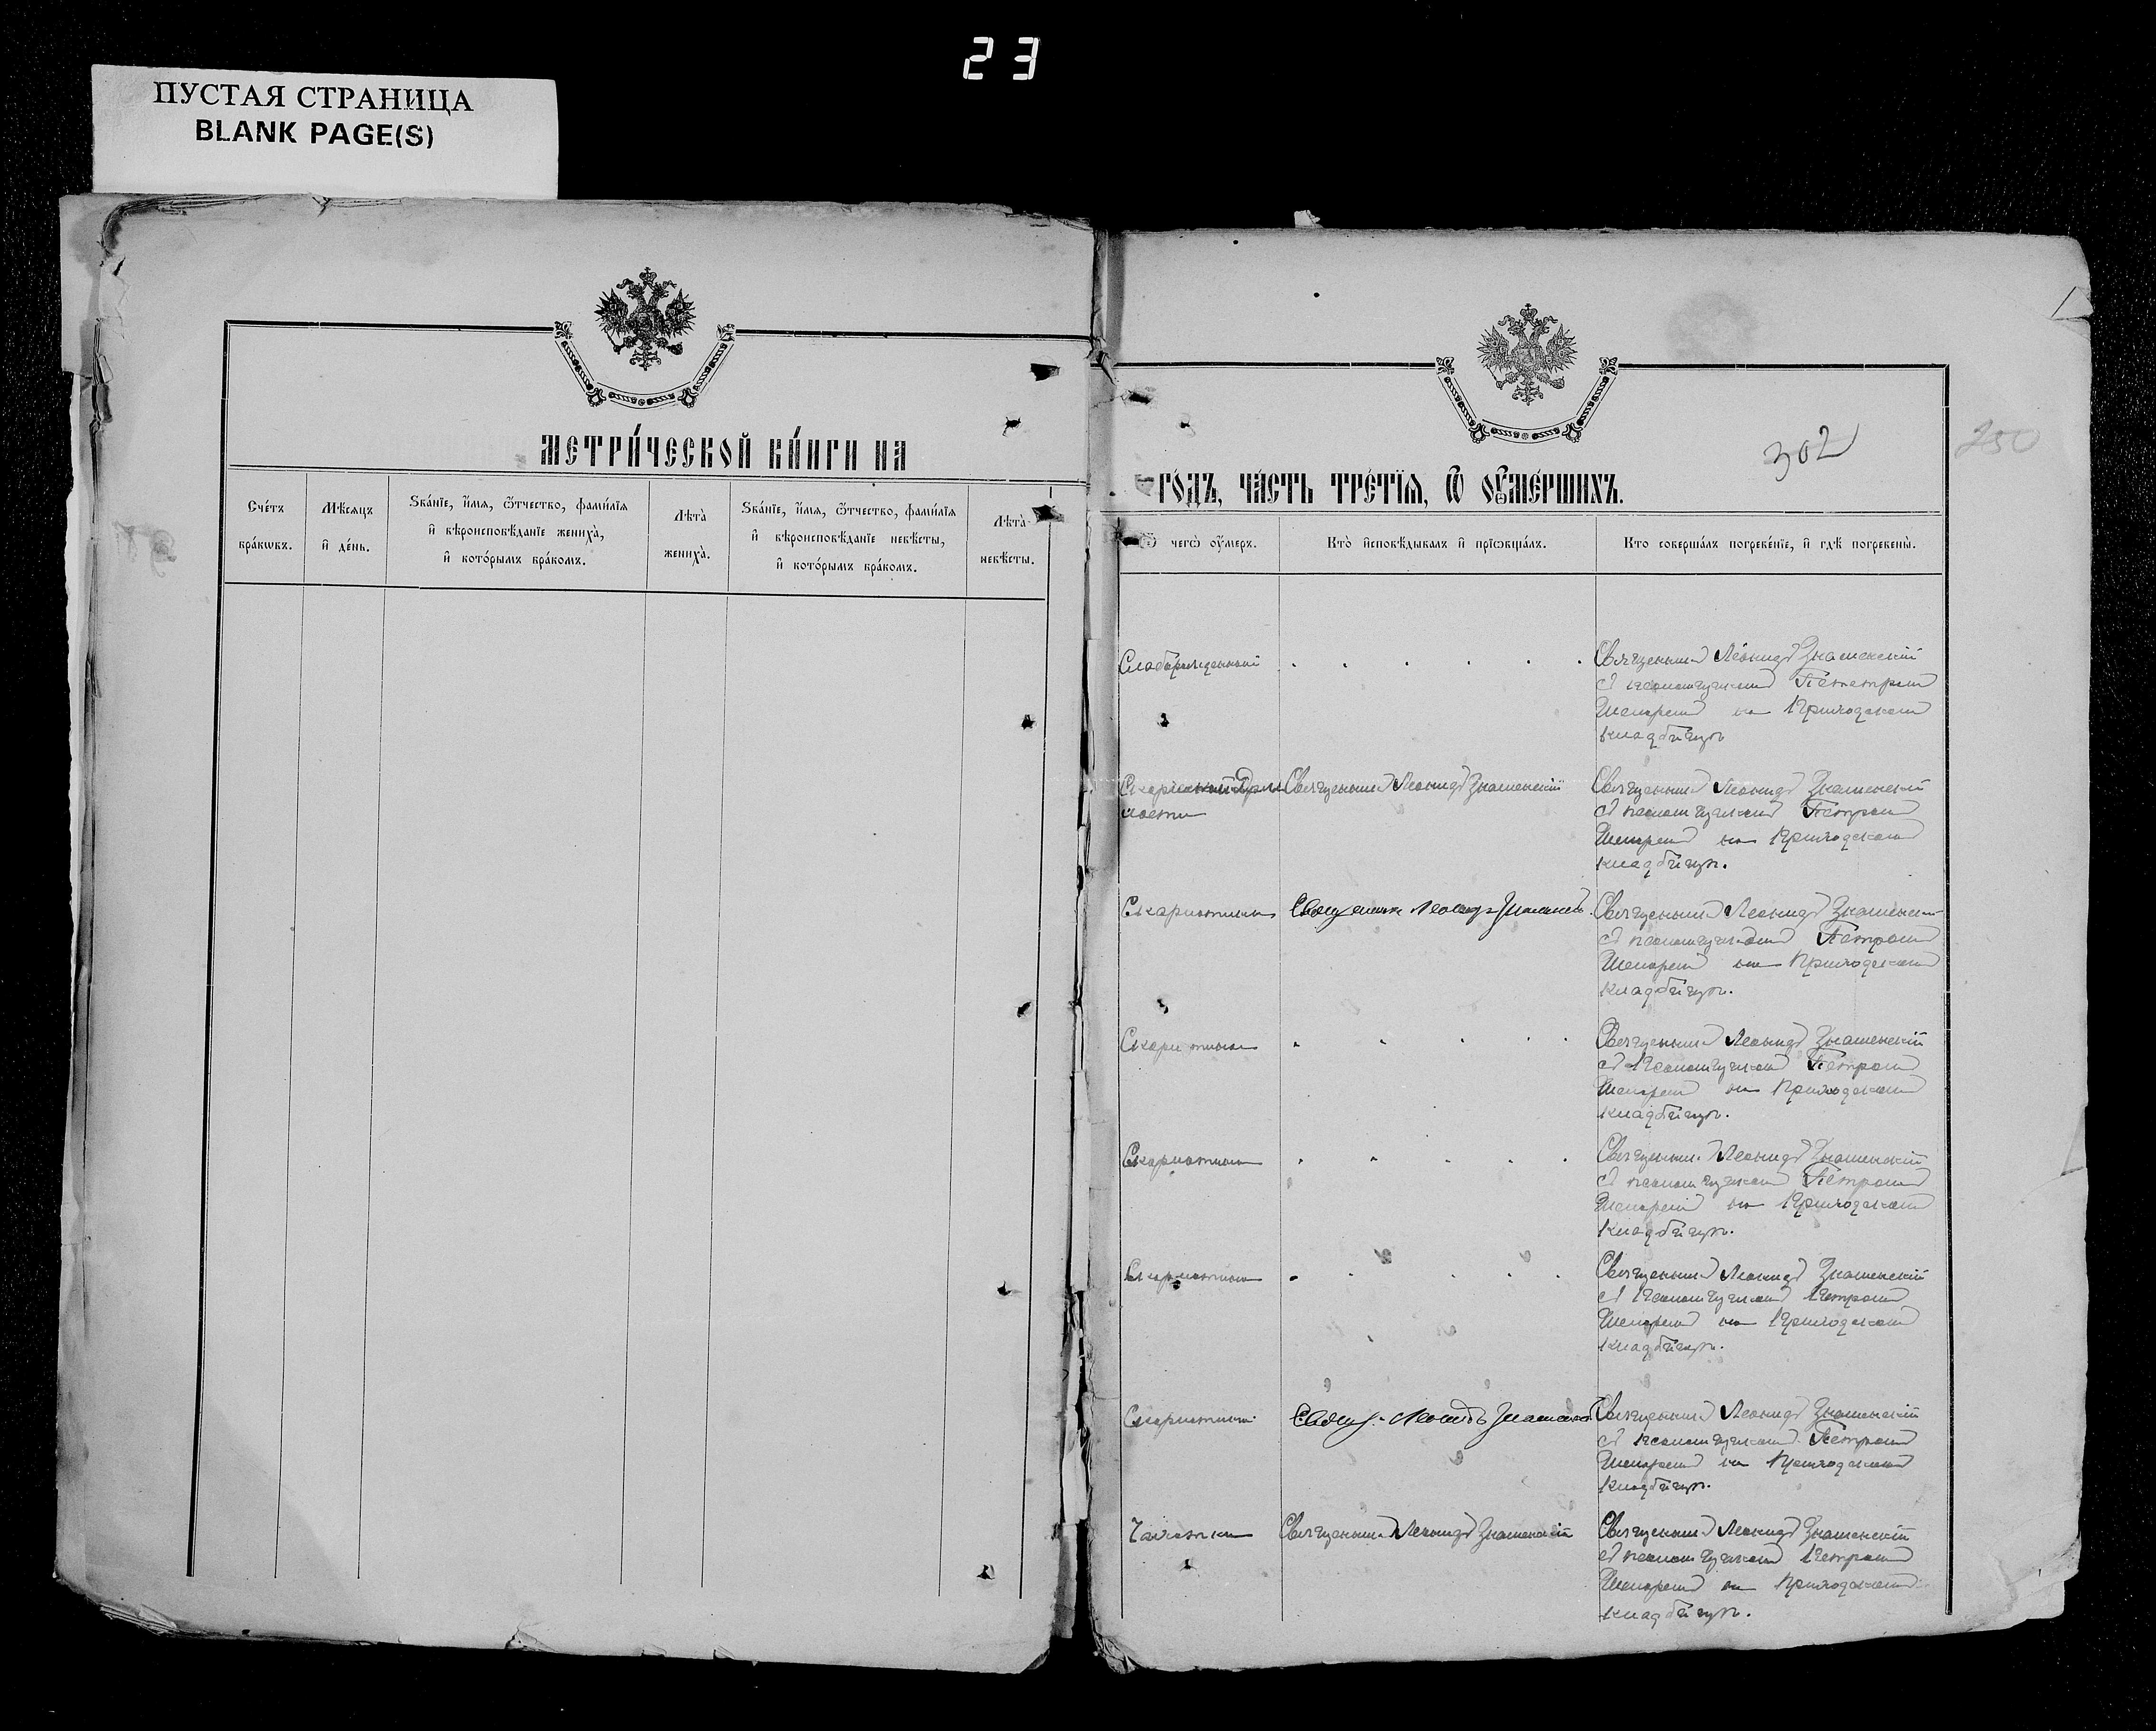 23
ПУСТАЯ СТРАНИЦА
BLANK PAGE(S)
МЕТРИ́ЧЕСКОЙ КНИ́ГИ НА
Сче́тъ
бра́кѡвъ.
Мѣ́сѧцъ
и҆ де́нь.
Ѕва́нїе, и҆́мѧ, ѻ҆́тчество, фами́лїѧ
и҆ вѣроисповѣ́данїе жениха̀,
и҆ кото́рымъ бра́комъ.
Лѣта̀
жениха̀.
Ѕва́нїе, и҆́мѧ, ѻ҆́тчество, фами́лїѧ
и҆ вѣроисповѣ́данїе невѣ́сты,
и҆ кото́рымъ бра́комъ.
Лѣта̀
невѣ́сты.
302
250
ГО́ДЪ, ЧА́СТЬ ТРЕ́ТЇѦ, Ѡ҆ ОУ҆МЕ́РШИХЪ.
чегѡ̀ оу҆́меръ.
Кто̀ и҆сповѣ́дывалъ и҆ прїѡбща́лъ.
Кто соверша́лъ погребе́нїе, и҆ гдѣ̀ погребены̀.
Священник Леонид Знаменский
с псаломщиком
на приходском
кладбищѣ
Священник Леонид Знаменский
Священник Леонид Знаменский
с псаломщиком Петром
на приходском
кладбищѣ.
Скарлатины
Священник Леонид Знаменск.
Священник Леонид Знаменский
с псаломщиком Петром
на приходском
кладбищѣ.
Скарлатины
Священник Леонид Знаменский
с псаломщиком Петром
на приходском
кладбищѣ.
Скарлатины
Священник Леонид Знаменский
с псаломщиком Петром
на приходском
кладбищѣ.
Скарлатины
Священник Леонид Знаменский
с псаломщиком Петром
на приходском
кладбищѣ.
Скарлатины
Свящ. Леонидъ Знаменский
Священник Леонид Знаменский
с псаломщиком Петром
на приходском
кладбищѣ.
Чахотки
Священник Леонид Знаменский
Священник Леонид Знаменский
с псаломщиком Петром
на приходском
кладбищѣ.